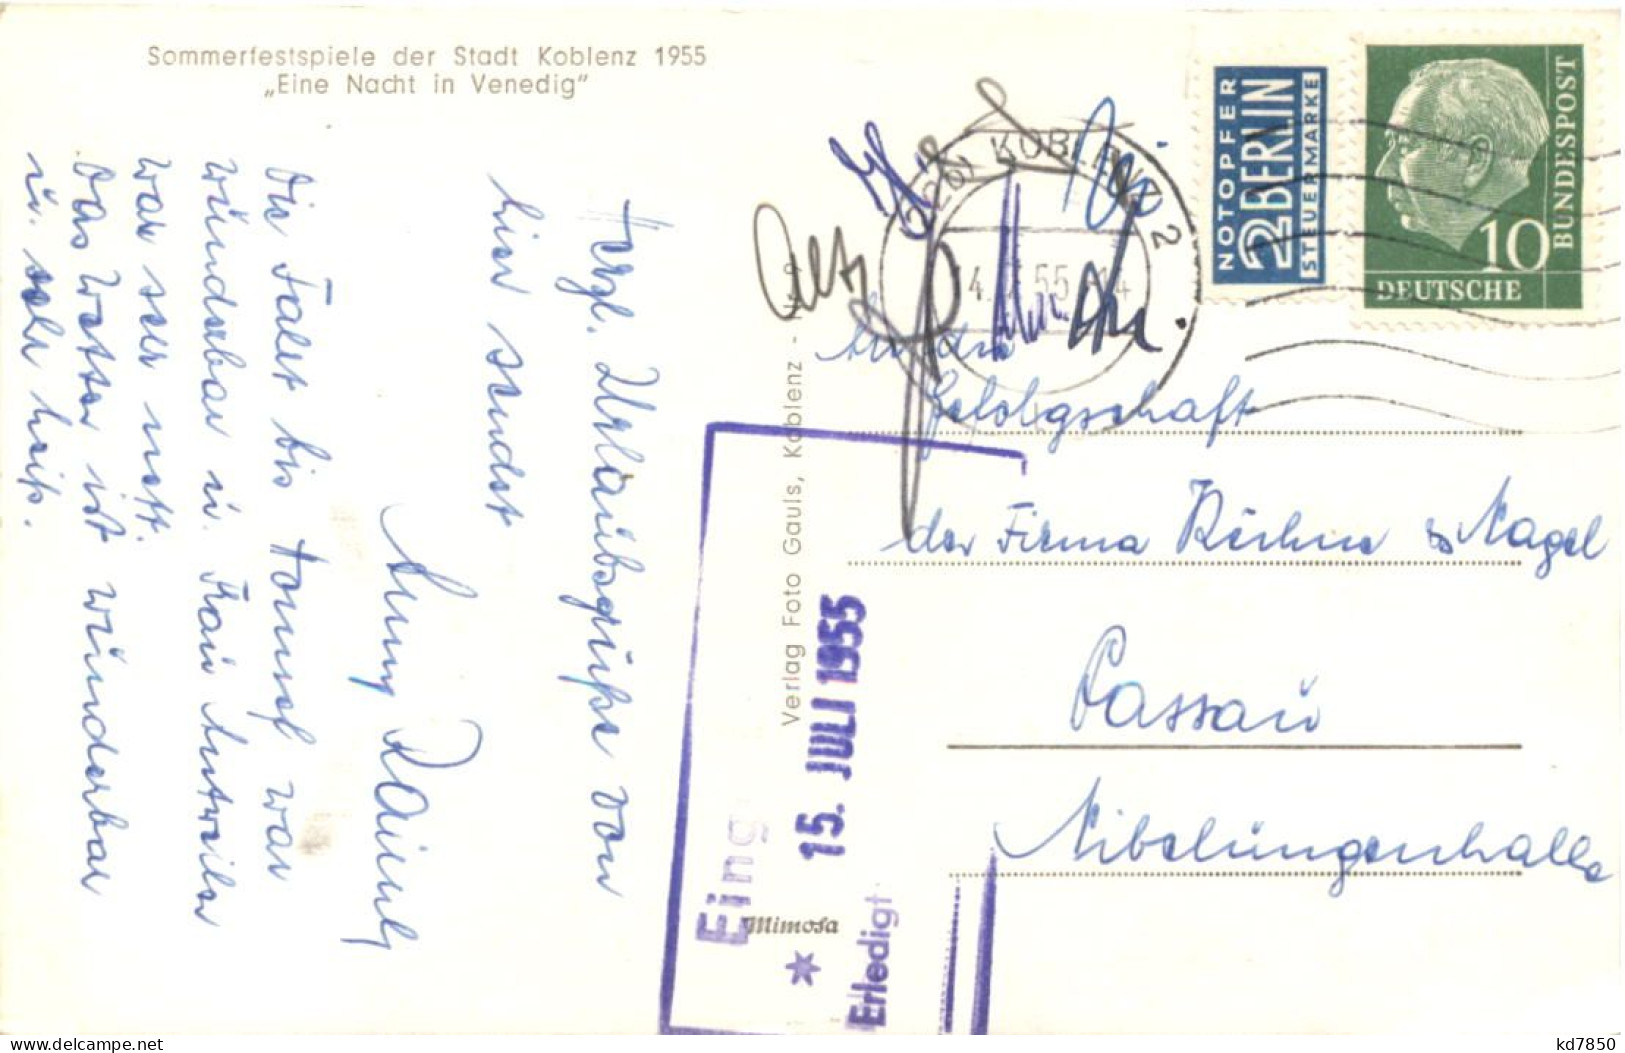 Sommerfestspiele der Stadt Koblenz 1955
„Eine Nacht in Venedig"
Herzl. Urlaubsgrüße von
hier sendet
Die Fahrt bis
war
wunderbar u. Frau
war sehr nett.
Das Wetter ist wunderbar
u. sehr heiß.
Verlag Foto Gauls, Koblenz -
Mimosa
NOTOPFER
2 BERLIN
STEUERMARKE
DEUTSCHE
BUNDESPOST
10
KOBLENZ 2
55
An die
Gefolgschaft
der Firma Kühne & Nagel
Passau
Nibelungenhalle
Eing
* 15. JULI 1955
Erledigt
kd7850